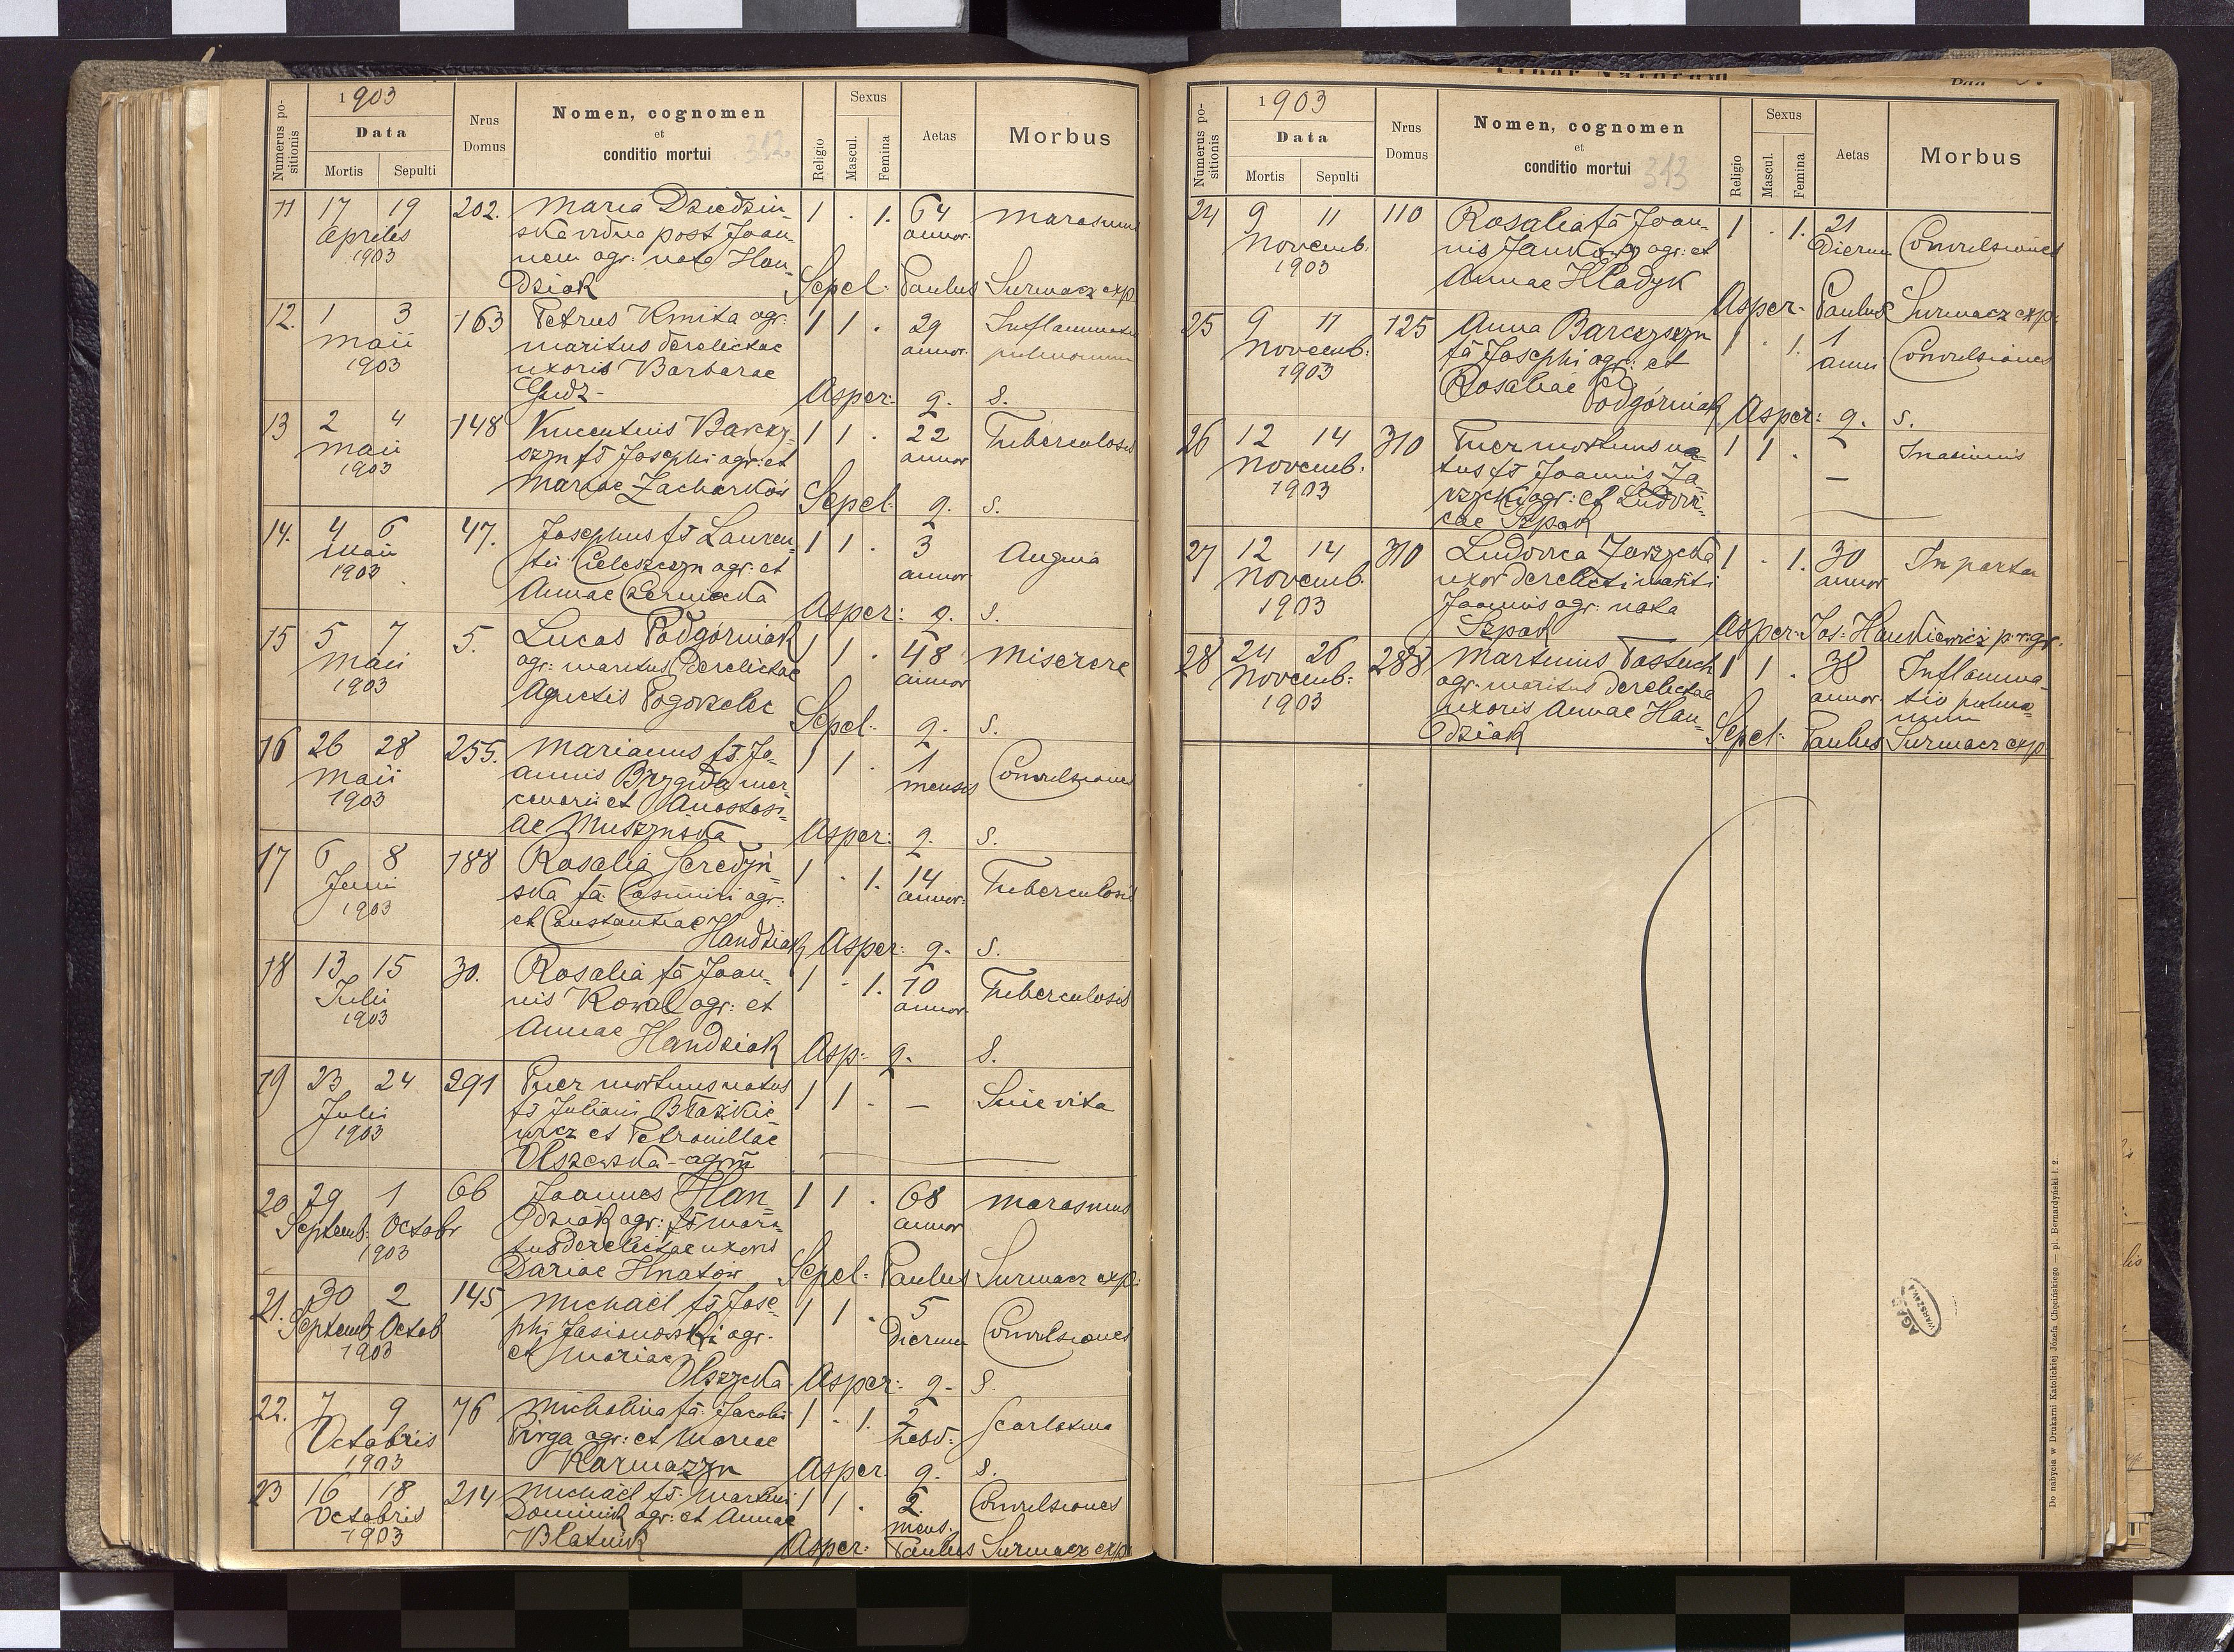 Numerus positionis
1903
Data
Mortis Sepulti
Nrus Domus
Nomen, cognomen
et
conditio mortui
312
Religio
Sexus
Mascul. Femina
Aetas
Morbus
11 17 19 202. Maria Dziedzin- 1 . 1. 64 Marasmus
Aprilis ska vidua post Joan- annor.
1903 nem agr: nata Han-
dziak Sepel: Paulus Surmacz exp.
12. 1 3 163 Petrus Kmita agr: 1 1 . 29 Inflammatio
Maii maritus derelictae annor. pulmonum
1903 uxoris Barbarae
Gudz - Asper: q. s.
13 2 4 148 Vincentius Barczy- 1 1 . 22 Tuberculosis
Maii szyn fs Josephi agr: et annor
1903 Mariae Zacharków Sepel. q. s.
14. 4 6 47. Josephus fs Lauren- 1 1 . 3 Angina
Maii tii Cieleszczyn agr: et annor
1903 Annae Czerniecka Asper: q. s.
15 5 7 5. Lucas Podgórniak 1 1 . 48 Miserere
Maii agr: maritus derelictae annor
1903 Agnetis Pogorzelec Sepel: q. s.
16 26 28 255. Marianus fs. Jo- 1 1 . 1 Convulsiones
Maii annis Brygida mer- mensis
1903 cenarii et Anastasi-
ae Muszyńska Asper: q. s.
17 6 8 188 Rosalia Seredyń- 1 . 1. 14 Tuberculosis
Junii ska fa. Casimiri agr: annor.
1903 et Constantiae
Handziak Asper: q. s.
18 13 15 30. Rosalia fa Joan- 1 - 1. 10 Tuberculosis
Julii nis Kowal agr: et annor.
1903 Annae Handziak Asp: q. s.
19 23 24 291 Puer mortuus natus 1 1 . — Sine vita
Julii fs Juliani Błażkie
1903 wicz et Petronillae
Olszewska - agr
20 29 1 66 Joannes Han- 1 1 . 68 Marasmus
Septemb: Octobr dziak agr: fs mari-
1903 tus derelictae uxoris annor
Dariae Hnatów Sepel: Paulus Surmacz exp:
21. 30 2 145 Michaël fs Jose- 1 1 . 5 Convulsiones
Septemb Octob phi Jasionowski agr. dierum
1903 et Mariae
Olszycka Asper: q. s.
22. 7 9 76 Michalina fa. Jacobi 1 - 1. 2 Scarlatina
Octobris Pirga agr: et Mariae hebd:
1903 Karmazyn Asper. q. s.
23 16 18 214 Michaël fs. Martini 1 1 . 2. Convulsiones
Octobris Dominik agr: et Annae mens.
1903 Blatnik Asper: Paulus Surmacz exp.
Liber Natorum
Pag
Numerus positionis
1903
Data
Mortis Sepulti
Nrus Domus
Nomen, cognomen
et
conditio mortui
313
Religio
Sexus
Mascul. Femina
Aetas
Morbus
24 9 11 110 Rosalia fa Joan- 1 . 1. 21 Convulsiones
Novemb. nis Janków agr: et Dierum
1903 Annae Hładyk Asper. Paulus Surmacz exp.
25 9 11 125 Anna Barczyszyn 1 . 1. 1 Convulsiones
Novemb: fa Josephi agr: et anni
1903 Rosaliae
Podgórniak Asper: q. s.
26 12 14 310 Puer mortuus na- 1 1 . —
Novemb. tus fs Joannis Ja
1903 rzycki agr: et Ludovi-
cae Szpak
27 12 14 310 Ludovica Jarzycka 1 . 1. 30 In partu
Novemb. uxor derelicti mariti annor
1903 Joannis agr: nata
Szpak Asper: Jos: Hankiewicz p. r. gr.
28 24 26 288 Martinus Pastuch 1 1 . 38 Inflamma-
Novemb: agr. maritus derelictae annor. tio pulmo-
1903 uxoris Annae Han- num
dziak Sepel: Paulus Surmacz exp.
AGAD
WARSZAWA
Do nabycia w Drukarni Katolickiej Józefa Chęcińskiego — pl. Bernardyński l. 2.